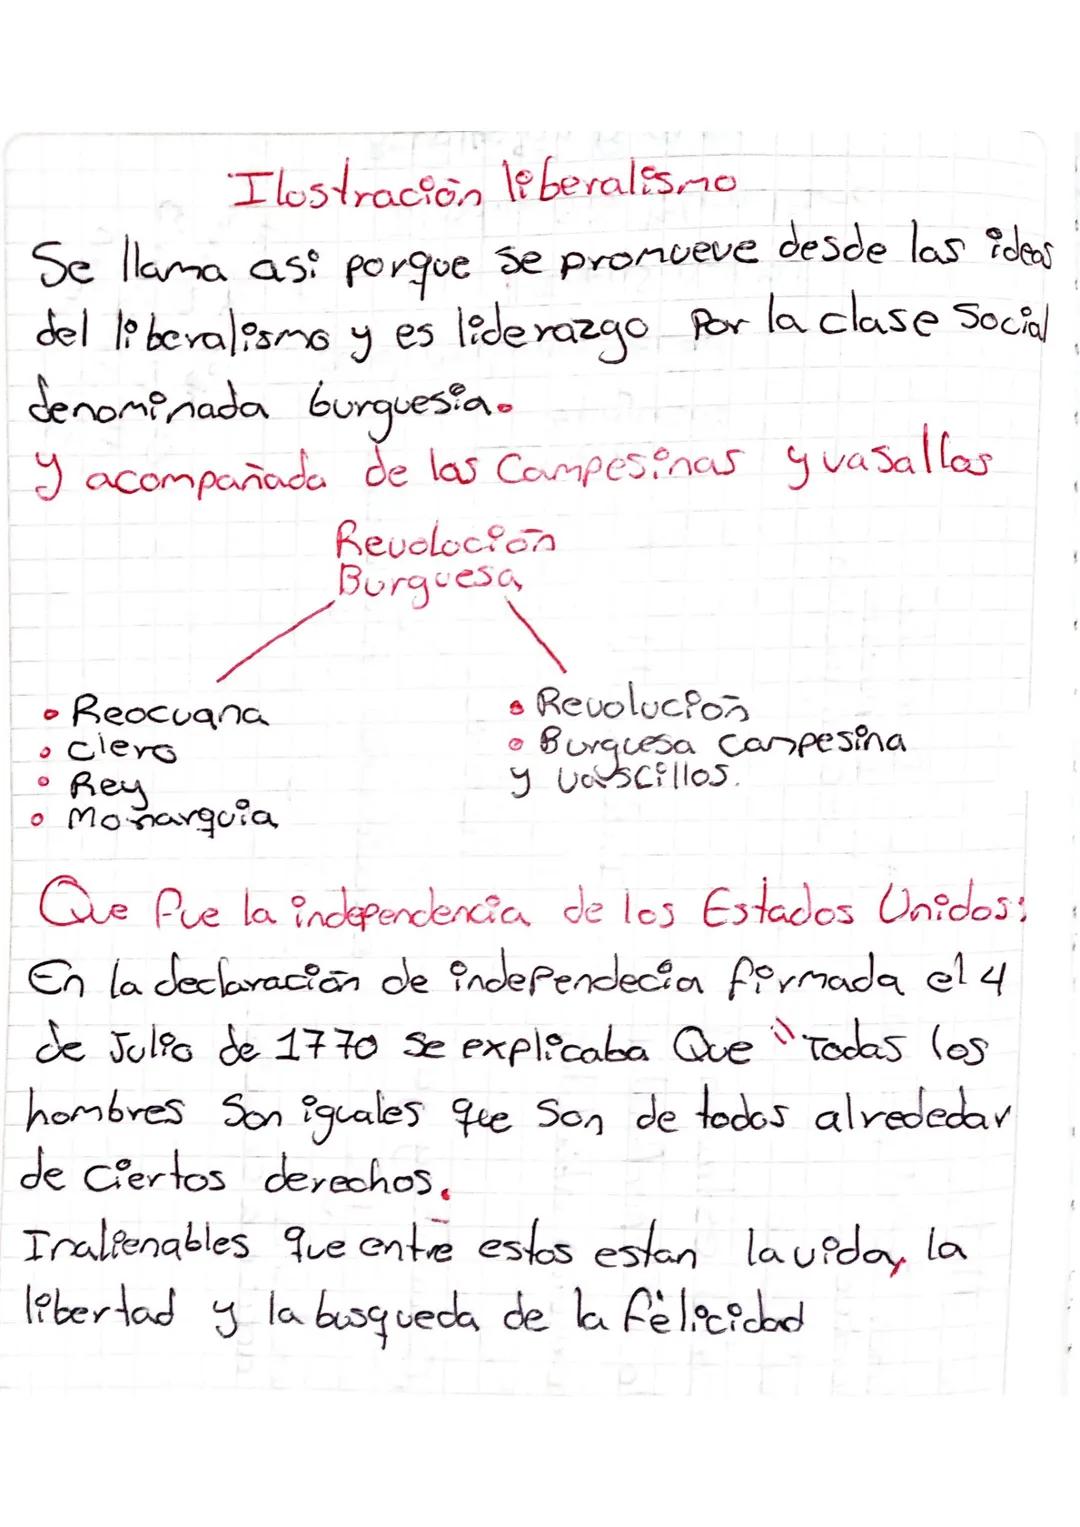 Ilostración liberalismo
Se llama asi porque se promueve desde las ideas
del liberalismo y es liderazgo Por la clase Social
denominada burguesia.
y acompañada de las Campesinas y vasallos
Revoloción
Burguesa
• Reocuana
• Clero
• Rey
• Monarquia
• Revolución
• Burguesa campesina
y vascillos.
Que fue la independencia de los Estados Unidos:
En la declaración de independecia firmada el 4
de Julio de 1770 se explicaba Que "Todas los
hombres Son iguales que Son de todos alrededar
de Ciertos derechos.
Inalienables que entre estos estan la vida, la
libertad y la busqueda de la felicidad